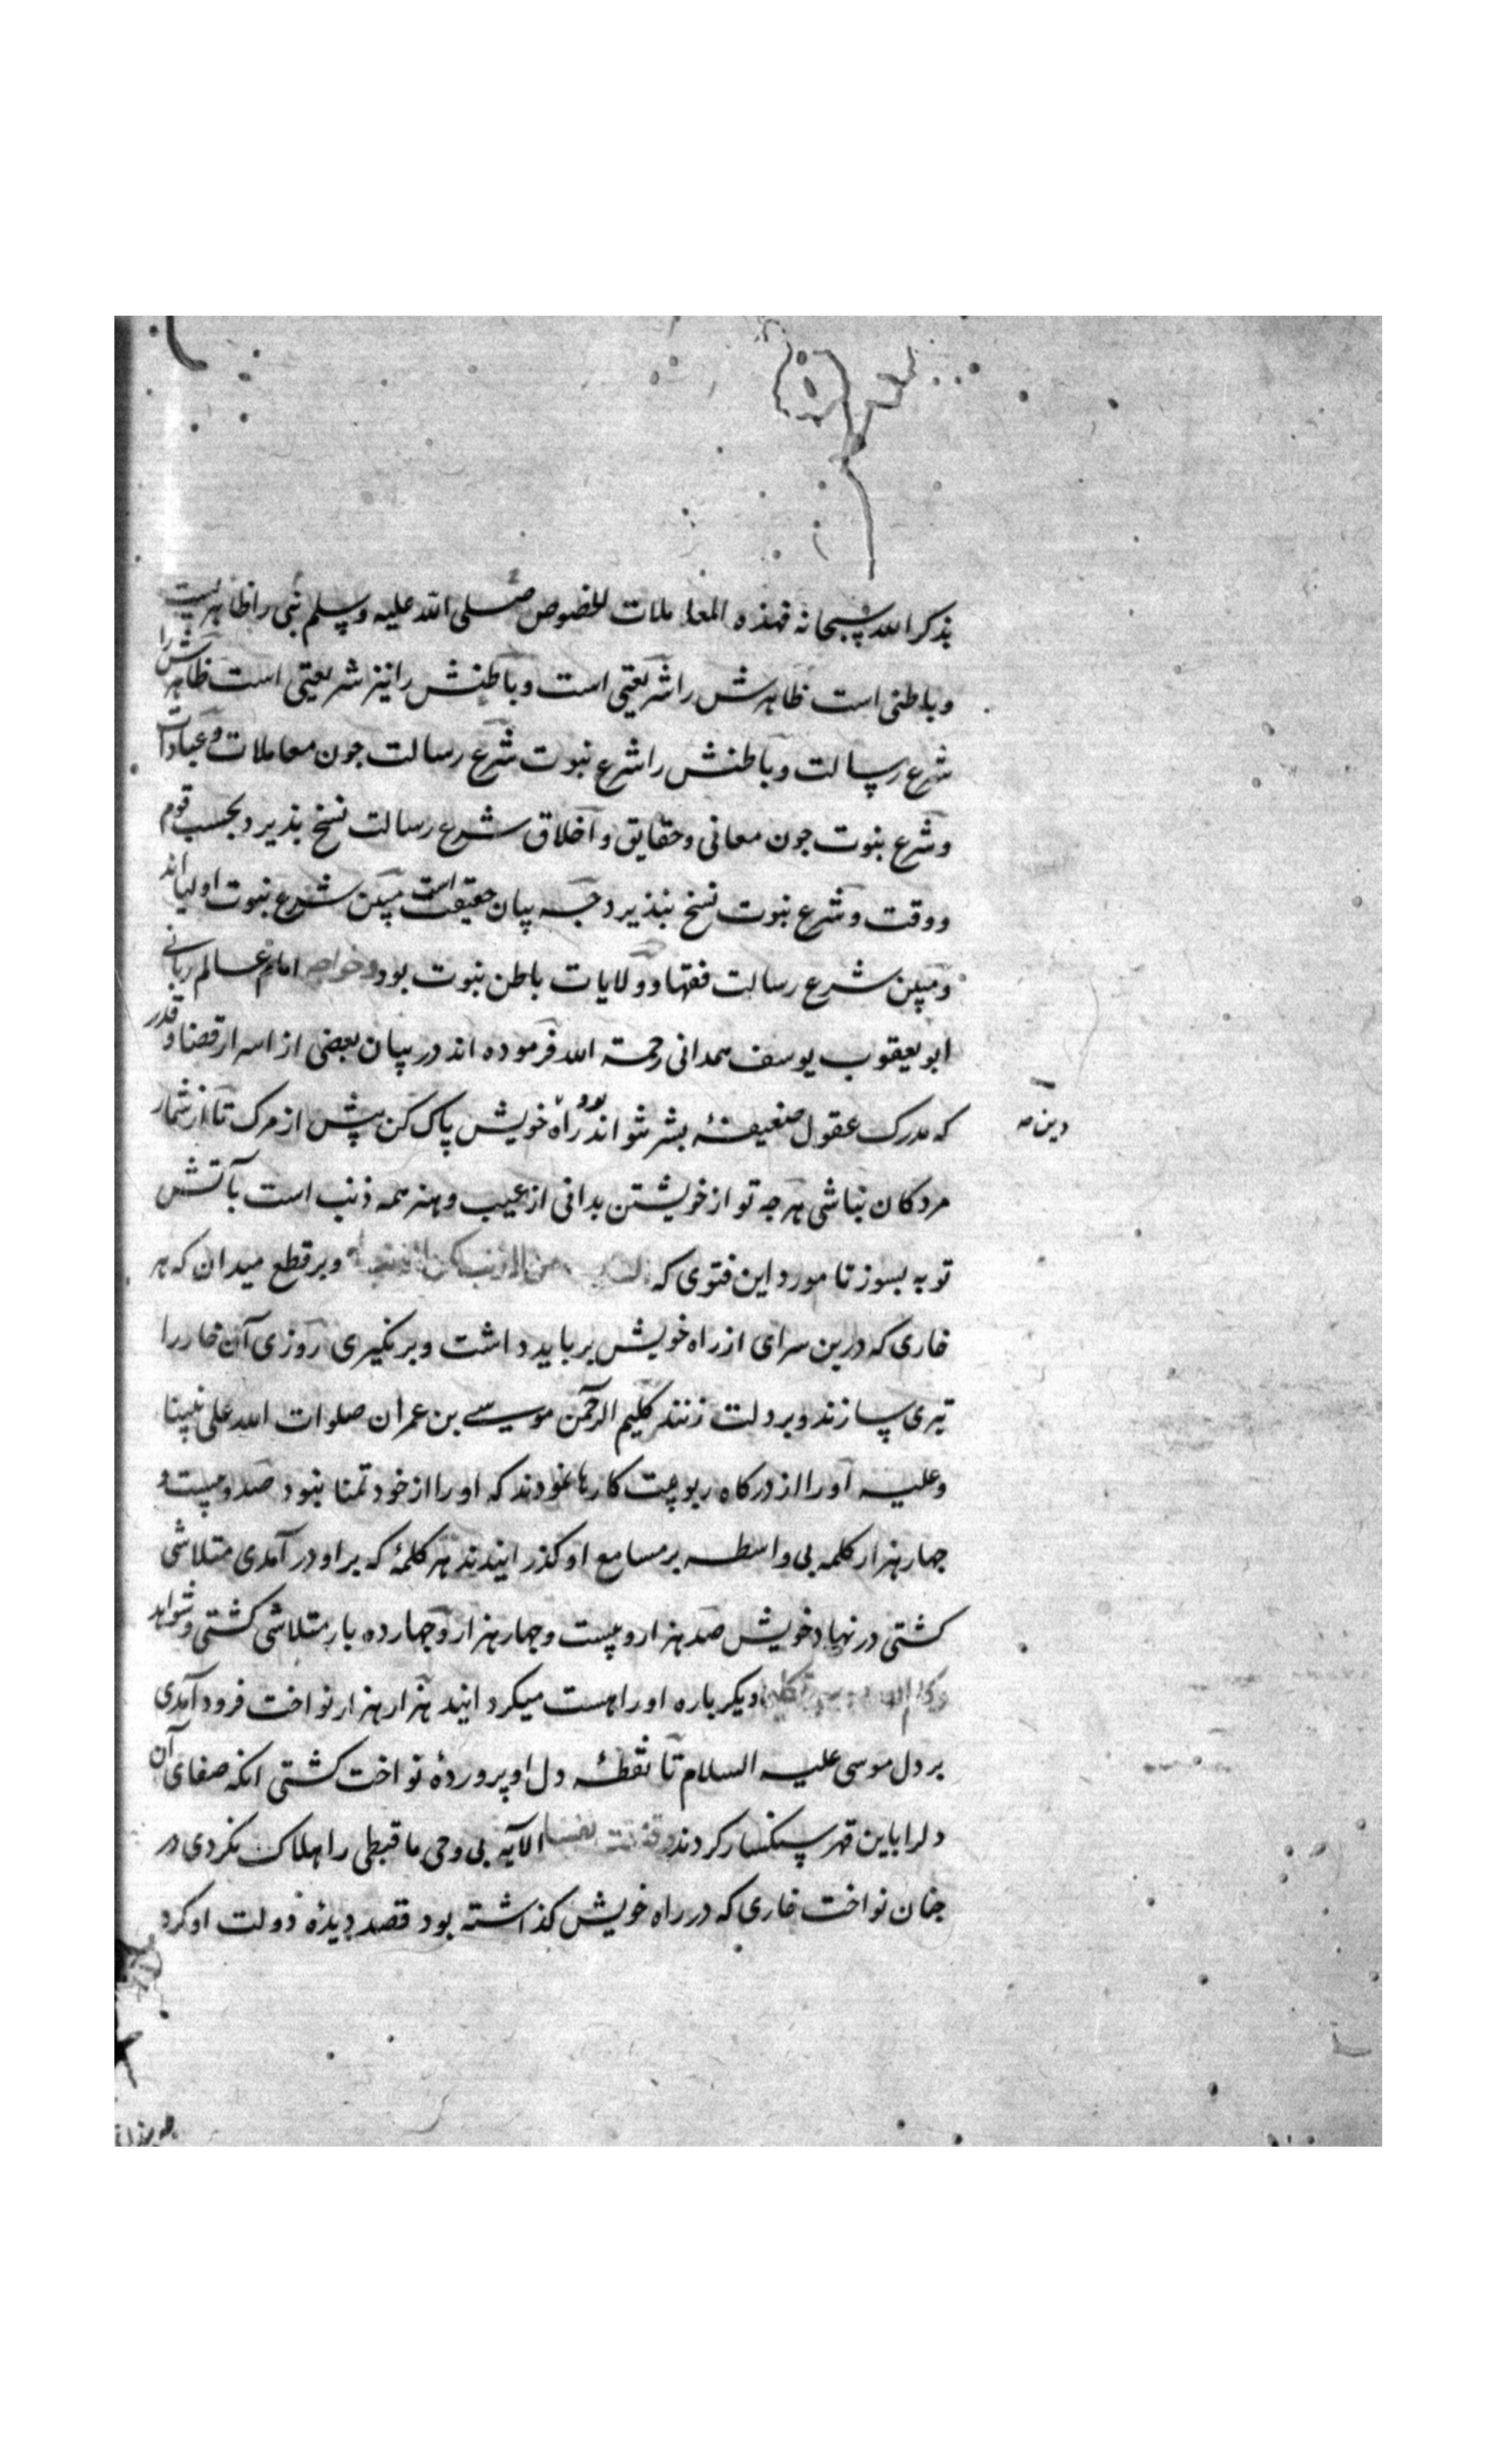 بذکر الله سبحانه فهذه المعاملات للخصوص صلی الله علیه وسلم نبی را ظاهریست
و باطنی است ظاهرش را شریعتی است و باطنش را نیز شریعتی است ظاهرش را
شرع رسالت و باطنش را شرع نبوت شرع رسالت جون معاملات و عبادات
و شرع نبوت جون معانی و حقایق و اخلاق شرع رسالت نسخ پذیرد بحسب قوم
و وقت و شرع نبوت نسخ نپذیرد جه بیان حقیقت است مبین شرع نبوت اولیااند
و مبین شرع رسالت فقها و ولایات باطن نبوت بود و خواجه امام عالم ربانی
ابو یعقوب یوسف همدانی رحمة الله فرموده اند در بیان بعضی از اسرار قضا و قدر
که مدرک عقول ضعیفهٔ بشر نتواند بود راه خویش پاک کن پیش از مرک تا از شمار
دین صه
مردکان نباشی هرجه تو از خویشتن بدانی از عیب و هنر همه ذنب است بآتش
توبه بسوز تا مورد این فتوی که من الذنب کمن لا ذنب له و بر قطع میدان که هر
خاری که درین سرای از راه خویش بر باید داشت و بر نکیری روزی آن خار را
تیری سازند و بر دلت زنند کلیم الرحمن موسی بن عمران صلوات الله علی نبینا
و علیه او را از درکاه ربوبیت کارها نمودند که او را از خود تمنا نبود صد و بیست و
جهار هزار کلمه بی واسطه بر مسامع او کذرانیدند هر کلمهٔ که بر او در آمدی متلاشی
کشتی در نهاد خویش صد هزار و بیست و جهار هزار و جهارده بار متلاشی کشتی و شواهد
دیکر باره او را هست میکردانید هزار هزار نواخت فرود آمدی
بر دل موسی علیه السلام تا نقطهٔ دل او پروردهٔ نواخت کشتی انکه صفای آن
دلرا باین قهر سنکسار کردند و قتلت نفسا الآیه بی وحی ما قبطی را هلاک نکردی در
جنان نواخت خاری که در راه خویش کذاشته بود قصد دیدهٔ دولت او کرد